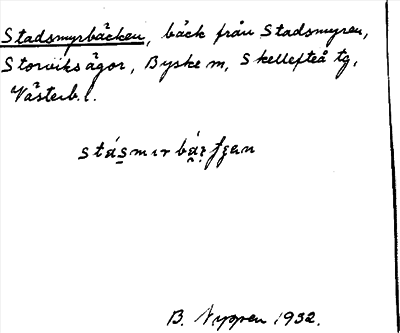 Stadsmyrbäcken, bäck från Stadsmyren,
Storviks ägor, Byske m, Skellefteå tg,
Västerb. l.
B. Nyppen 1932.